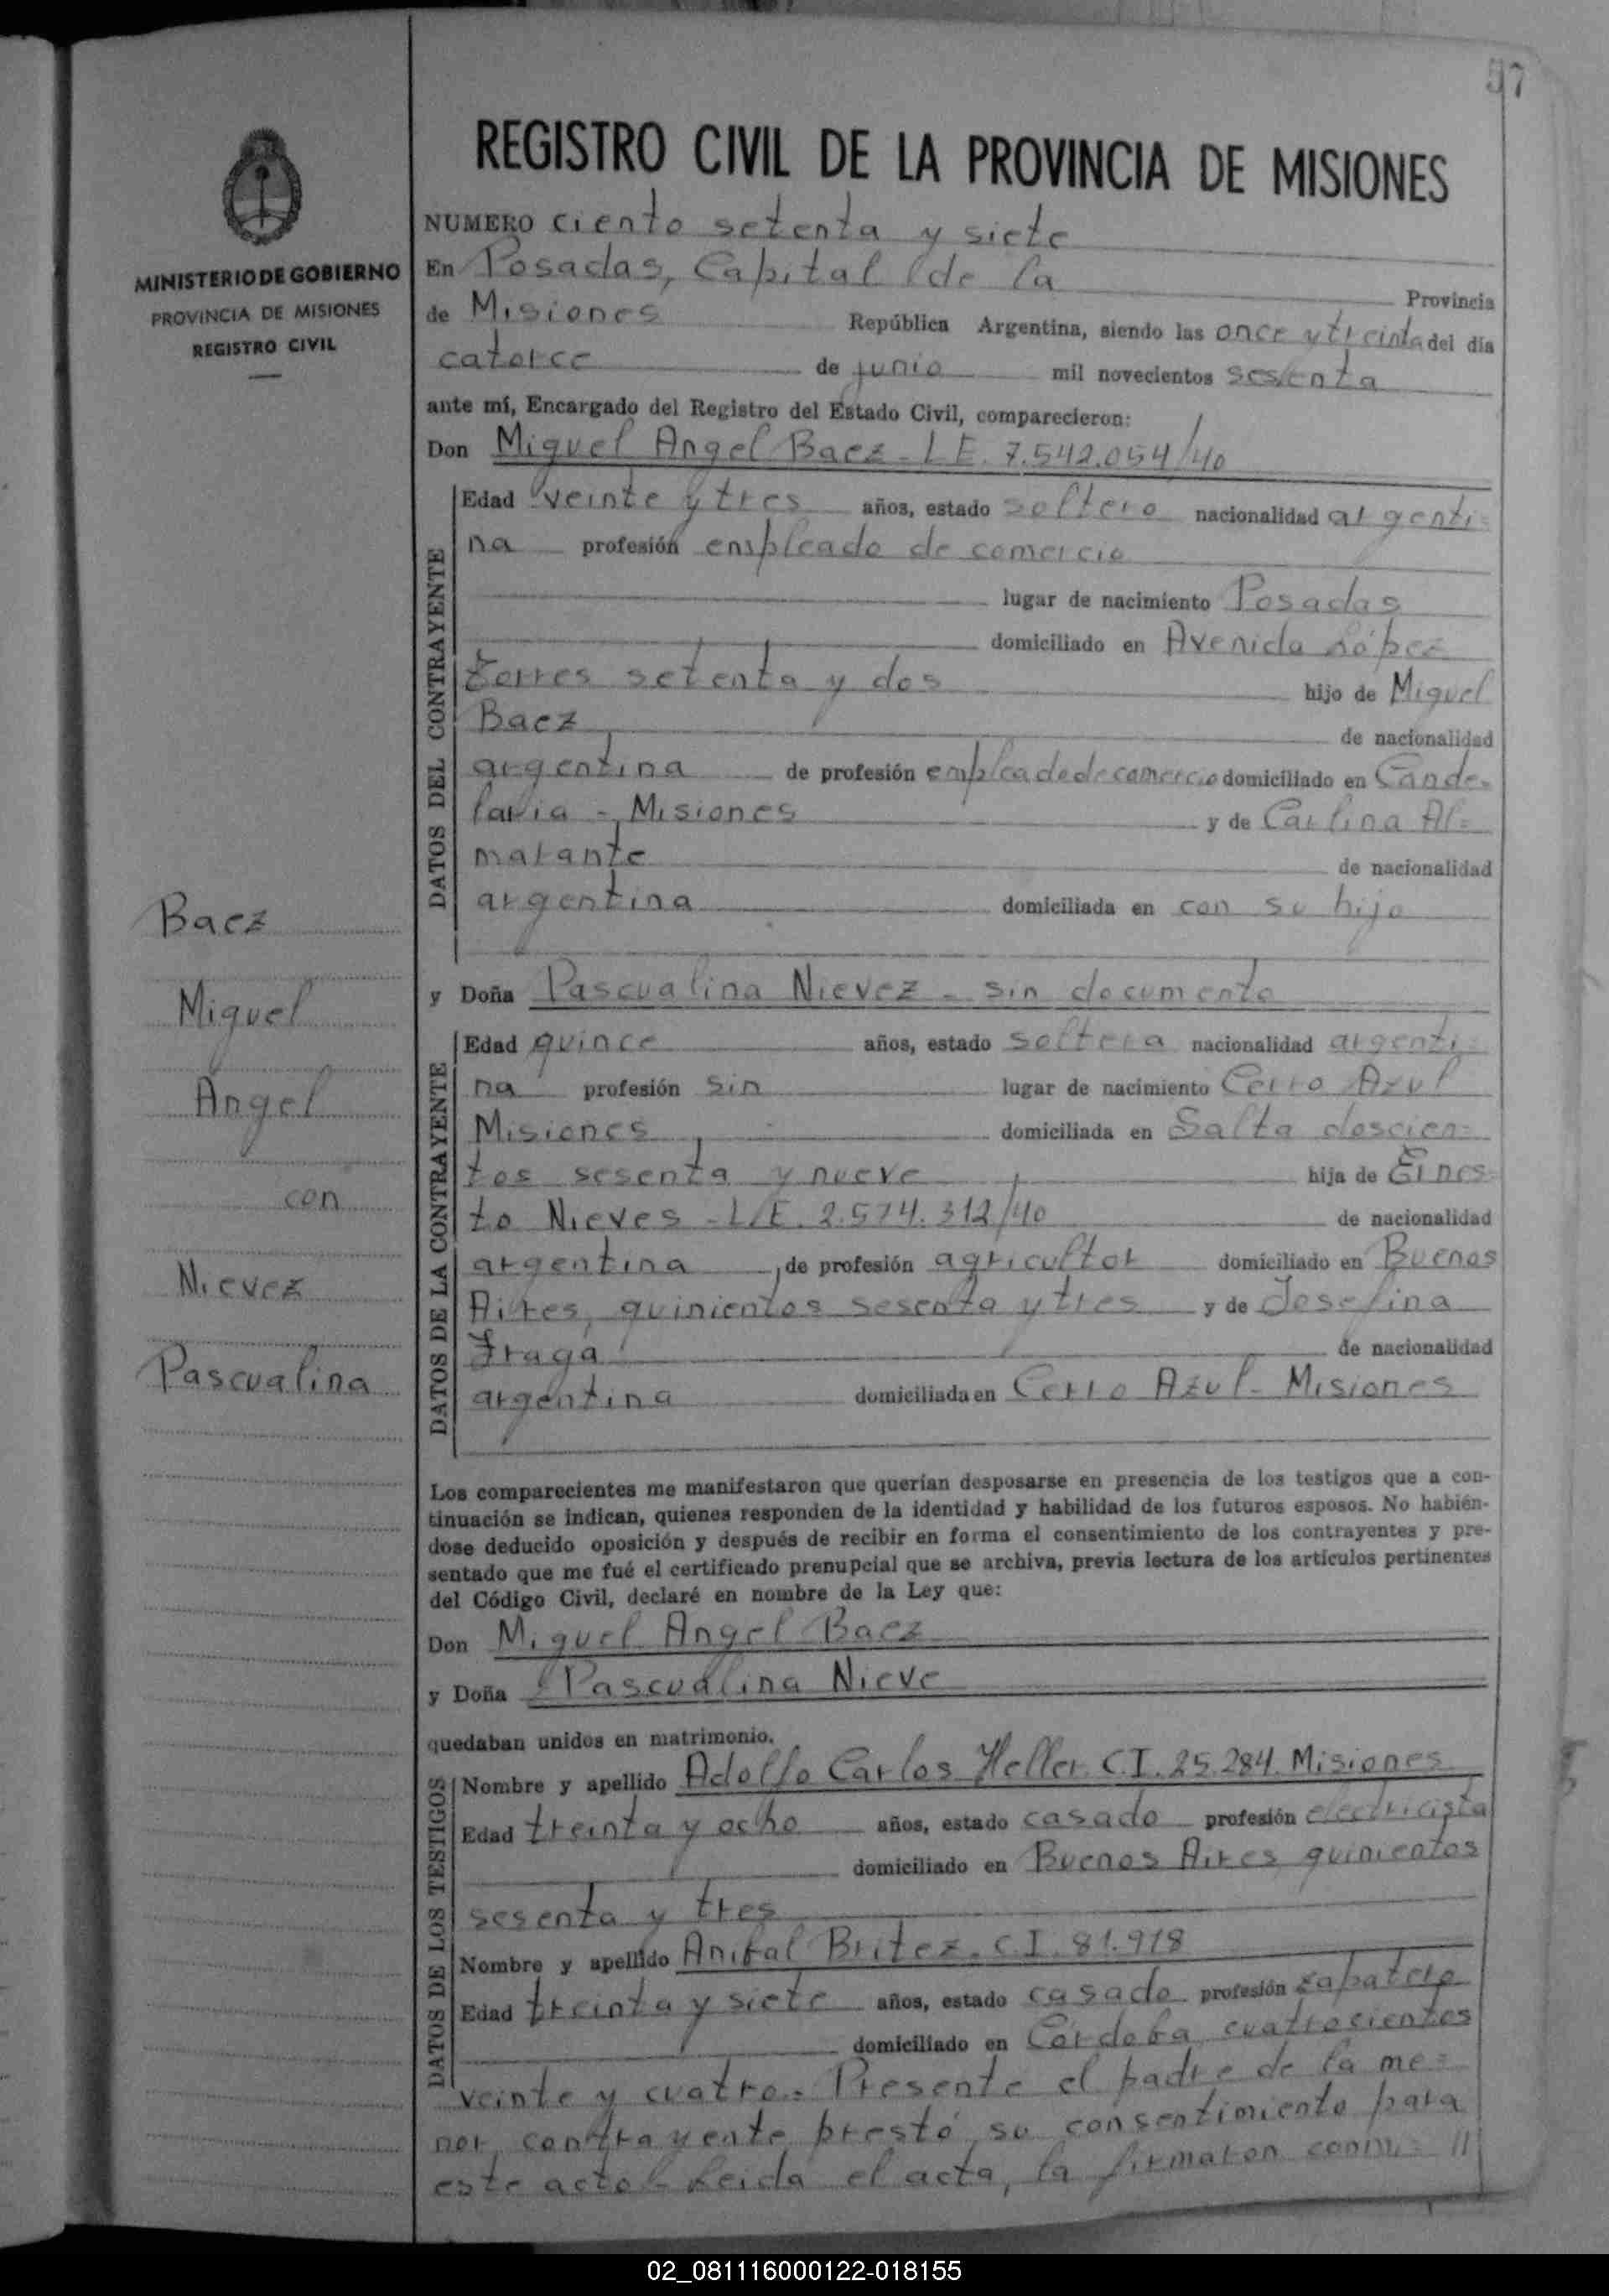 57
REGISTRO CIVIL DE LA PROVINCIA DE MISIONES
MINISTERIO DE GOBIERNO
PROVINCIA DE MISIONES
REGISTRO CIVIL
NUMERO ciento setenta y siete
En Posadas, Capital de la Provincia
de Misiones República Argentina, siendo las once y treinta del día
catorce de junio mil novecientos sesenta
ante mí, Encargado del Registro del Estado Civil, comparecieron:
Don Miguel Angel Baez - L E. 7.542.054/40
DATOS DEL CONTRAYENTE
Edad veinte y tres años, estado soltero nacionalidad argenti=
na profesión empleado de comercio
lugar de nacimiento Posadas
domiciliado en Avenida López
torres setenta y dos hijo de Miguel
Baez de nacionalidad
argentina de profesión empleado de comercio domiciliado en Cande=
laria - Misiones y de Carlina Al=
marante de nacionalidad
argentina domiciliada en con su hijo
y Doña Pascualina Nievez - sin documento
DATOS DE LA CONTRAYENTE
Edad quince años, estado soltera nacionalidad argenti=
na profesión sin lugar de nacimiento Cerro Azul
Misiones domiciliada en Salta doscien=
tos sesenta y nueve hija de Ernes=
to Nieves - L.E. 2.574.312/40 de nacionalidad
argentina, de profesión agricultor domiciliado en Buenos
Aires, quinientos sesenta y tres y de Josefina
Fraga de nacionalidad
argentina domiciliada en Cerro Azul - Misiones
Baez
Miguel
Angel
con
Nievez
Pascualina
Los comparecientes me manifestaron que querían desposarse en presencia de los testigos que a con-
tinuación se indican, quienes responden de la identidad y habilidad de los futuros esposos. No habién-
dose deducido oposición y después de recibir en forma el consentimiento de los contrayentes y pre-
sentado que me fué el certificado prenupcial que se archiva, previa lectura de los artículos pertinentes
del Código Civil, declaré en nombre de la Ley que:
Don Miguel Angel Baez
y Doña Pascualina Nieve
quedaban unidos en matrimonio.
DATOS DE LOS TESTIGOS
Nombre y apellido Adolfo Carlos Heller C.I. 25.284. Misiones
Edad treinta y ocho años, estado casado profesión electricista
domiciliado en Buenos Aires quinientos
sesenta y tres
Nombre y apellido Anibal Britez. C.I. 81.918
Edad treinta y siete años, estado casado profesión zapatero
domiciliado en Córdoba cuatrocientos
veinte y cuatro. Presente el padre de la me=
nor contrayente prestó su consentimiento para
este acto - Leida el acta, la firmaron conmi= //
02_081116000122-018155